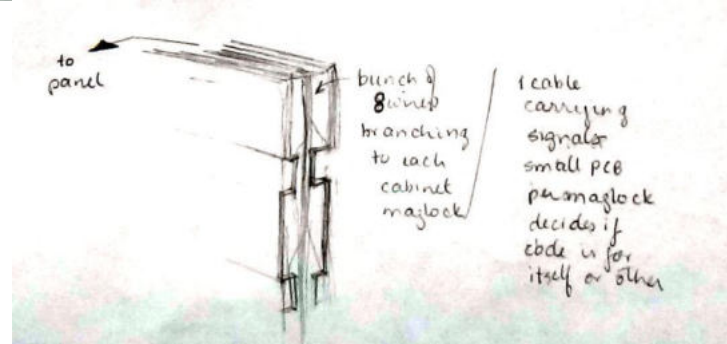 to
panel
bunch of
8 wires
branching
to each
cabinet
maglock
1 cable
carrying
signals
small PCB
per maglock
decides if
code is for
itself or other